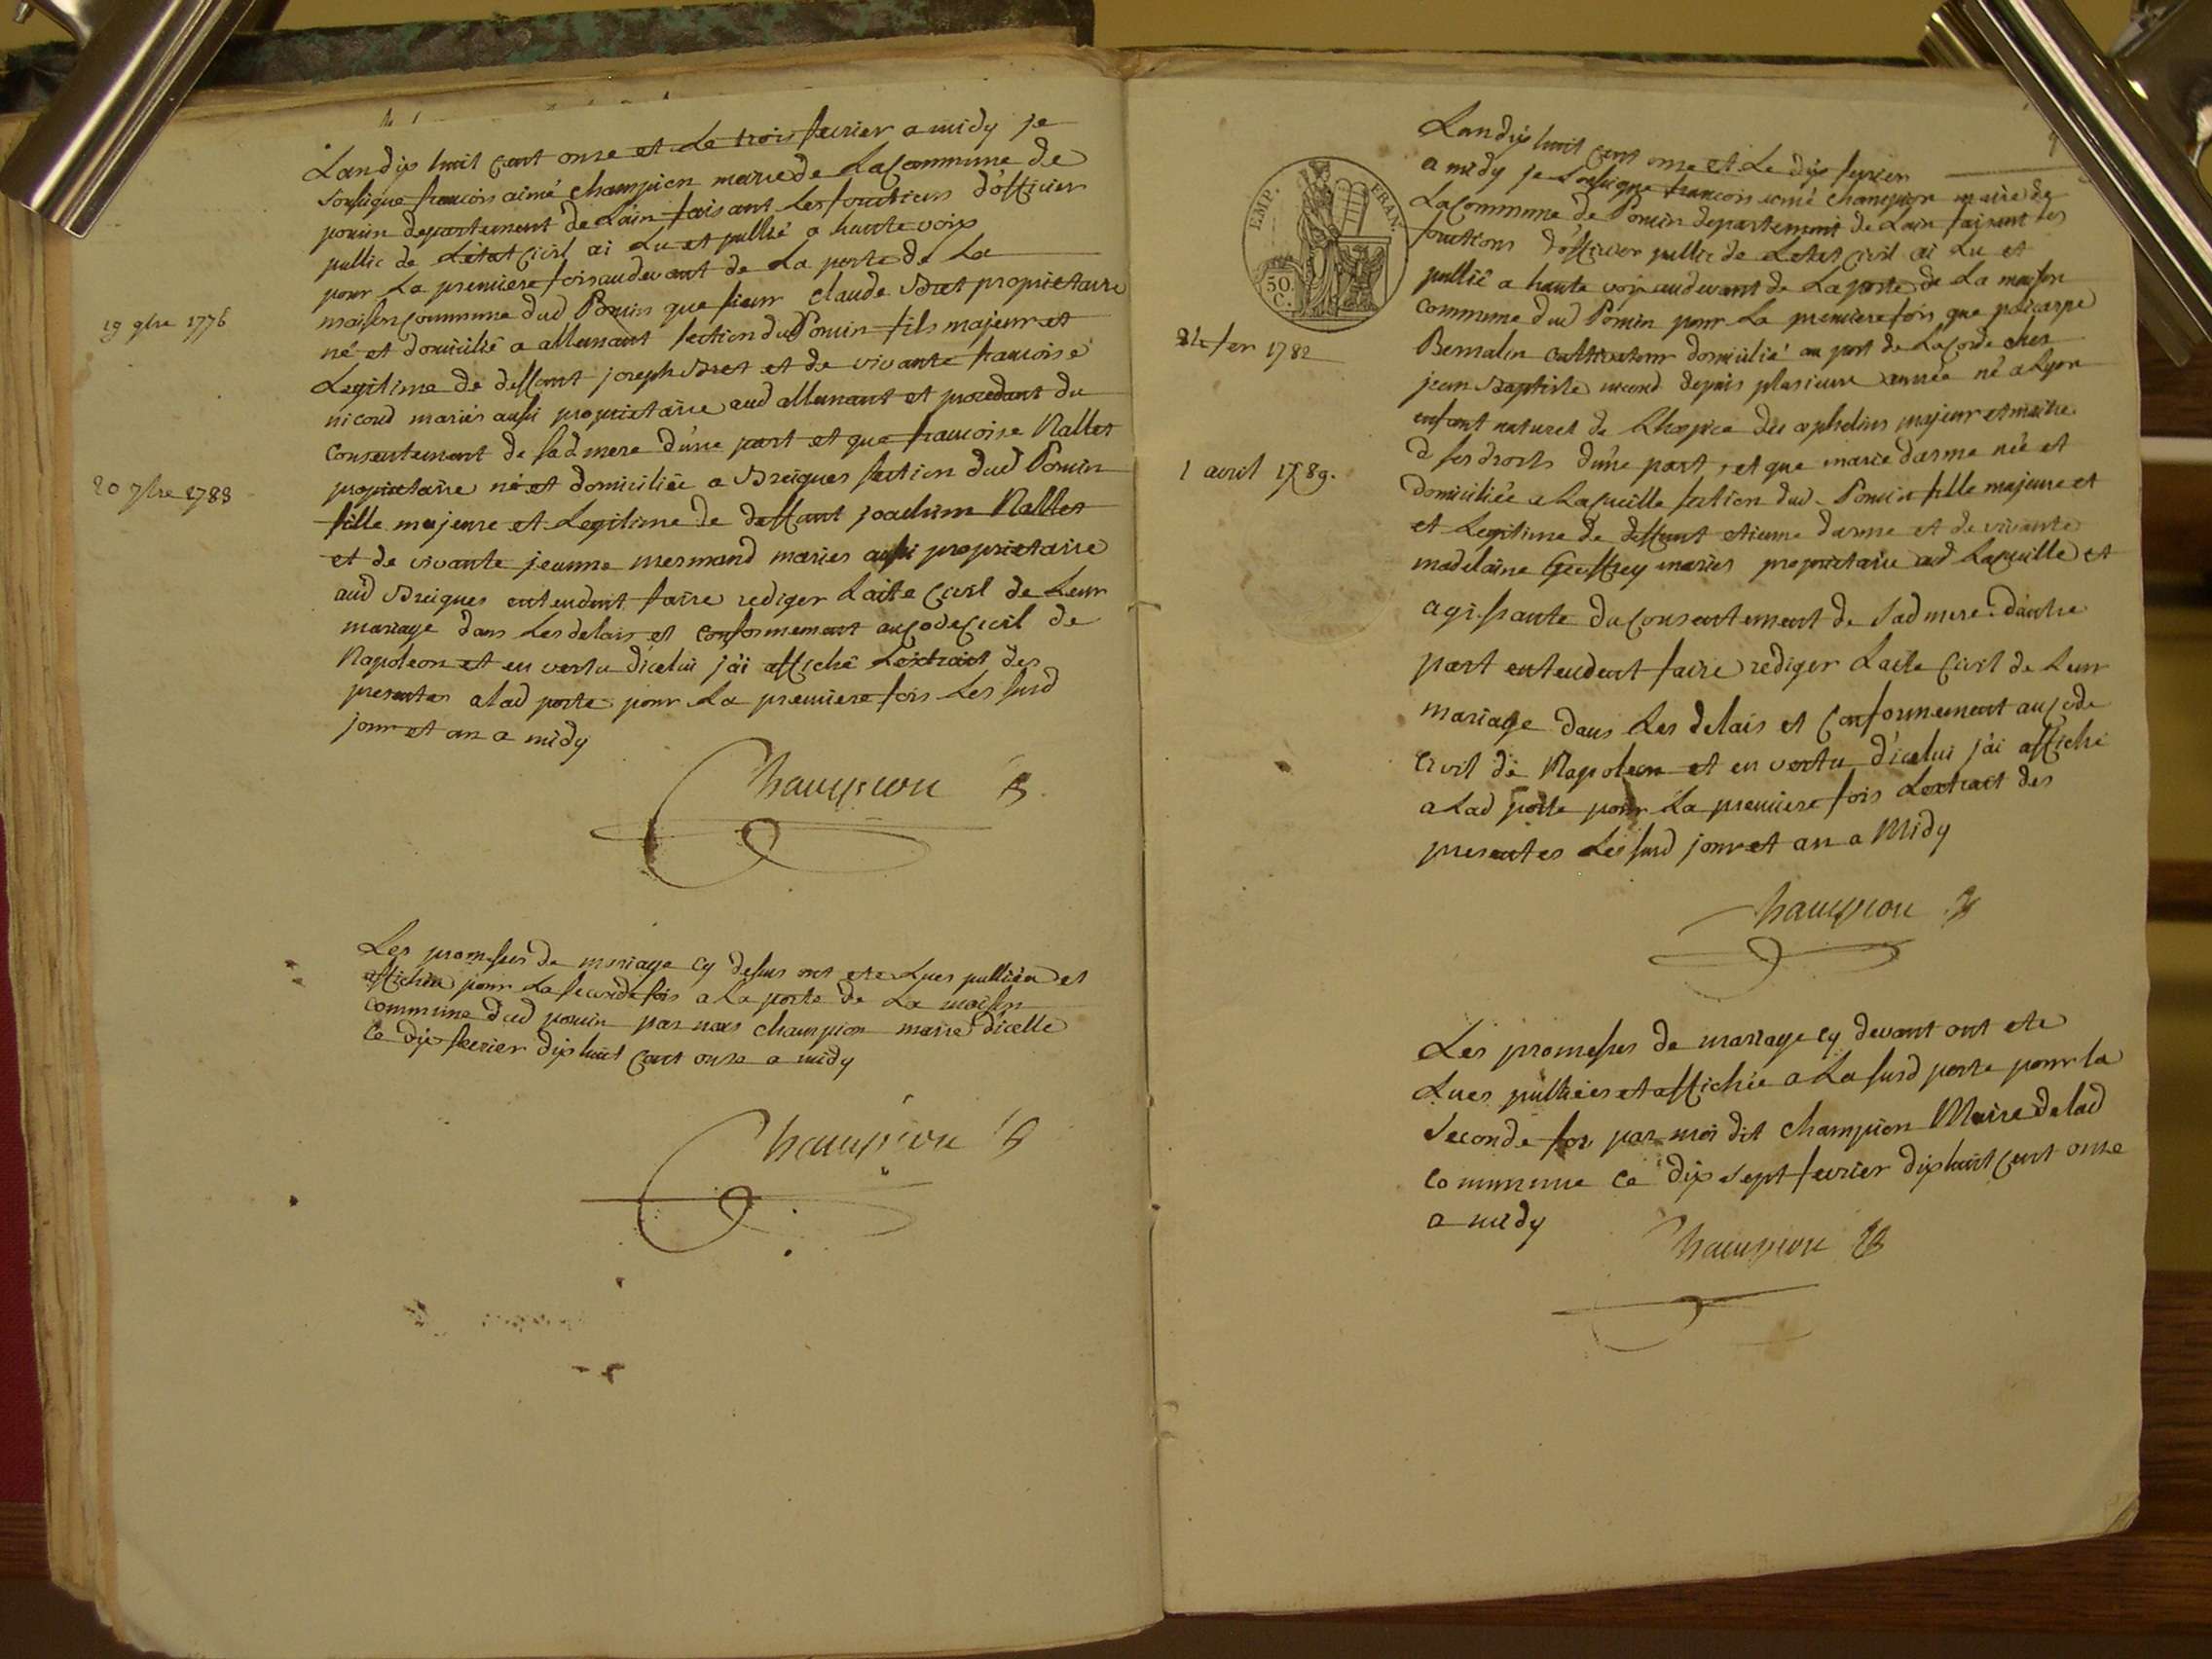 Landix huit cent onse et Le trois fevrier a midy je
soussigne francois aimé champion maire de La Commune de
poncin departement de Lain faisant Les fonctions d'officier
public de L'état Civil ai Lu et publié a haute voix
pour La premiere fois audevant de La porte de La
maison commune dud Poncin que sieur claude Bret proprietaire
né et domicilié a allemant section dud Poncin fils majeur et
Legitime de deffunt joseph Bret et de vivante francoise
nicoud mariés aussi proprietaire aud allemant et procedant du
consentement de sad mere d'une part et que francoise Nallet
proprietaire né et domiciliée a Breigues section dud Poncin
fille majeure et Legitime de deffunt joachim Nallet
et de vivante jeanne mermand mariés aussi proprietaire
aud Breigues entendent faire rediger L'acte Civil de Leur
mariage dans Les delais et conformement au code Civil de
Napoleon et en vertu d'icelui j'ai affiché L'extrait des
presentes a lad porte pour La premiere fois Les susd
jour et an a midy
Champion
19 9bre 1776
20 7bre 1788
Les promesses de mariage cy dessus ont ete Lues publiées et
affichées pour La seconde fois a La porte de La maison
commune dud poncin par nous champion maire d'icelle
Ce dix fevrier dix huit cent onse a midy
Champion
Landix huit cent onse et Le dix fevrier
a midy je soussigne francois aimé champion maire de
La Commune de Poncin departement de Lain faisant les
fonctions d'officier public de L'etat Civil ai Lu et
publié a haute voix audevant de La porte de La maison
commune dud Poncin pour La premiere fois que policarpe
cultivateur domicilié au port de La corde ches
jean Baptiste nicoud depuis plusieurs année né a Lyon
enfant naturel de L'hospice des orphelins majeur et maitre
d ses droits d'une part, et que marie darme née et
domiciliée a La Cueille section dud Poncin fille majeure et
et Legitime de deffunt etienne darme et de vivante
madelaine Geoffrey mariés proprietaire aud La cueille et
agissante du consentement de sad mere d'autre
part entendent faire rediger L'acte Civil de Leur
mariage dans Les delais et conformement au code
Civil de Napoleon et en vertu d'icelui j'ai affiché
a Lad porte pour La premiere fois L'extrait des
presentes Les susd jour et an a Midy
Champion
EMP. FRAN.
50.
C.
fer 1782
1 avril 1789.
Les promesses de mariage cy devant ont ete
Lues publiées et affichée a La susd porte pour la
Seconde foi par moi dit champion Maire de lad
commune ce dix sept fevrier dix huit cent onse
a midy
Champion